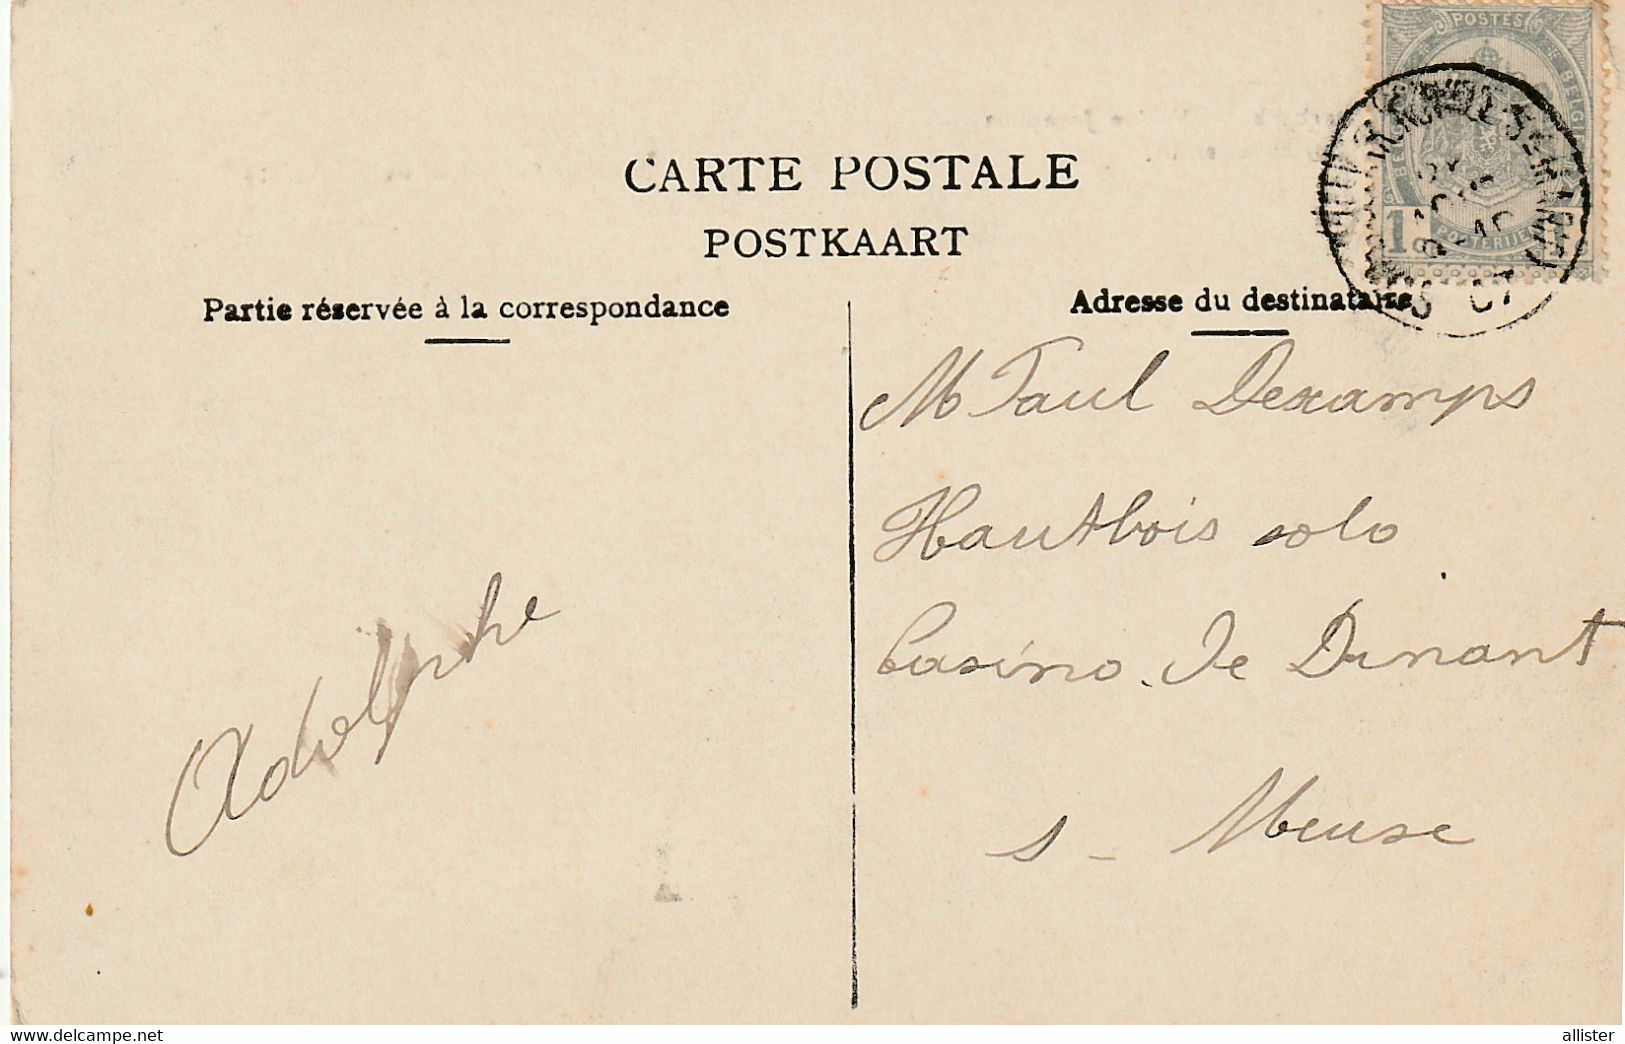 POSTES
BELGIQUE
BELGIË
POSTERIJEN
1 c
07
CARTE POSTALE
POSTKAART
Partie réservée à la correspondance
Adresse du destinataire
M Paul Dexamps
Hautbois solo
Casino de Dinant
s - Meuse
Adolphe
delcampe.net
allister